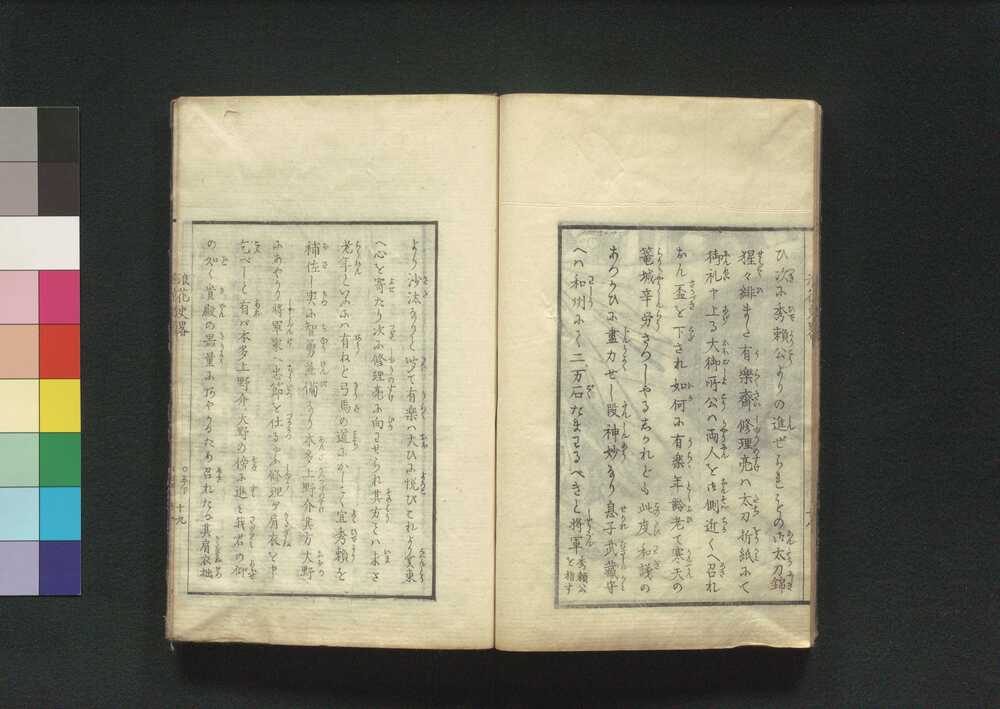 ひ次に秀頼公よりの進ぜられものは太刀錦
猩々緋まし〻有樂齋修理亮ハ太刀折紙にて
御礼申上る大御所公ハ両人を御側近くへ召れ
盃を下され如何に有楽年齢老て寒天の
篭城辛労さつしやるしかれども此度和議の
あつかひに盡力せし段神妙なり息子武蔵守
へハ和州にて二万石なまハるべきと将軍
秀頼公
を指す
より沙汰なりく有樂ハ大ひに悦びこれより関東
へ心を寄たり次に修理亮に向ハせられ其方ハ未だ
老年といふにハ有ねど弓馬の道にかしこく宜秀頼を
補佐し実に智勇兼備なり本多上野介其方大野
にあやかり将軍家へ忠節を仕るべし修理が肩衣を
乞べしと有バ本多上野介大野の傍に進ミ我君の仰
の如く貴殿の器量にあやかるため召れたる其肩衣拙
浪花史畧
十九